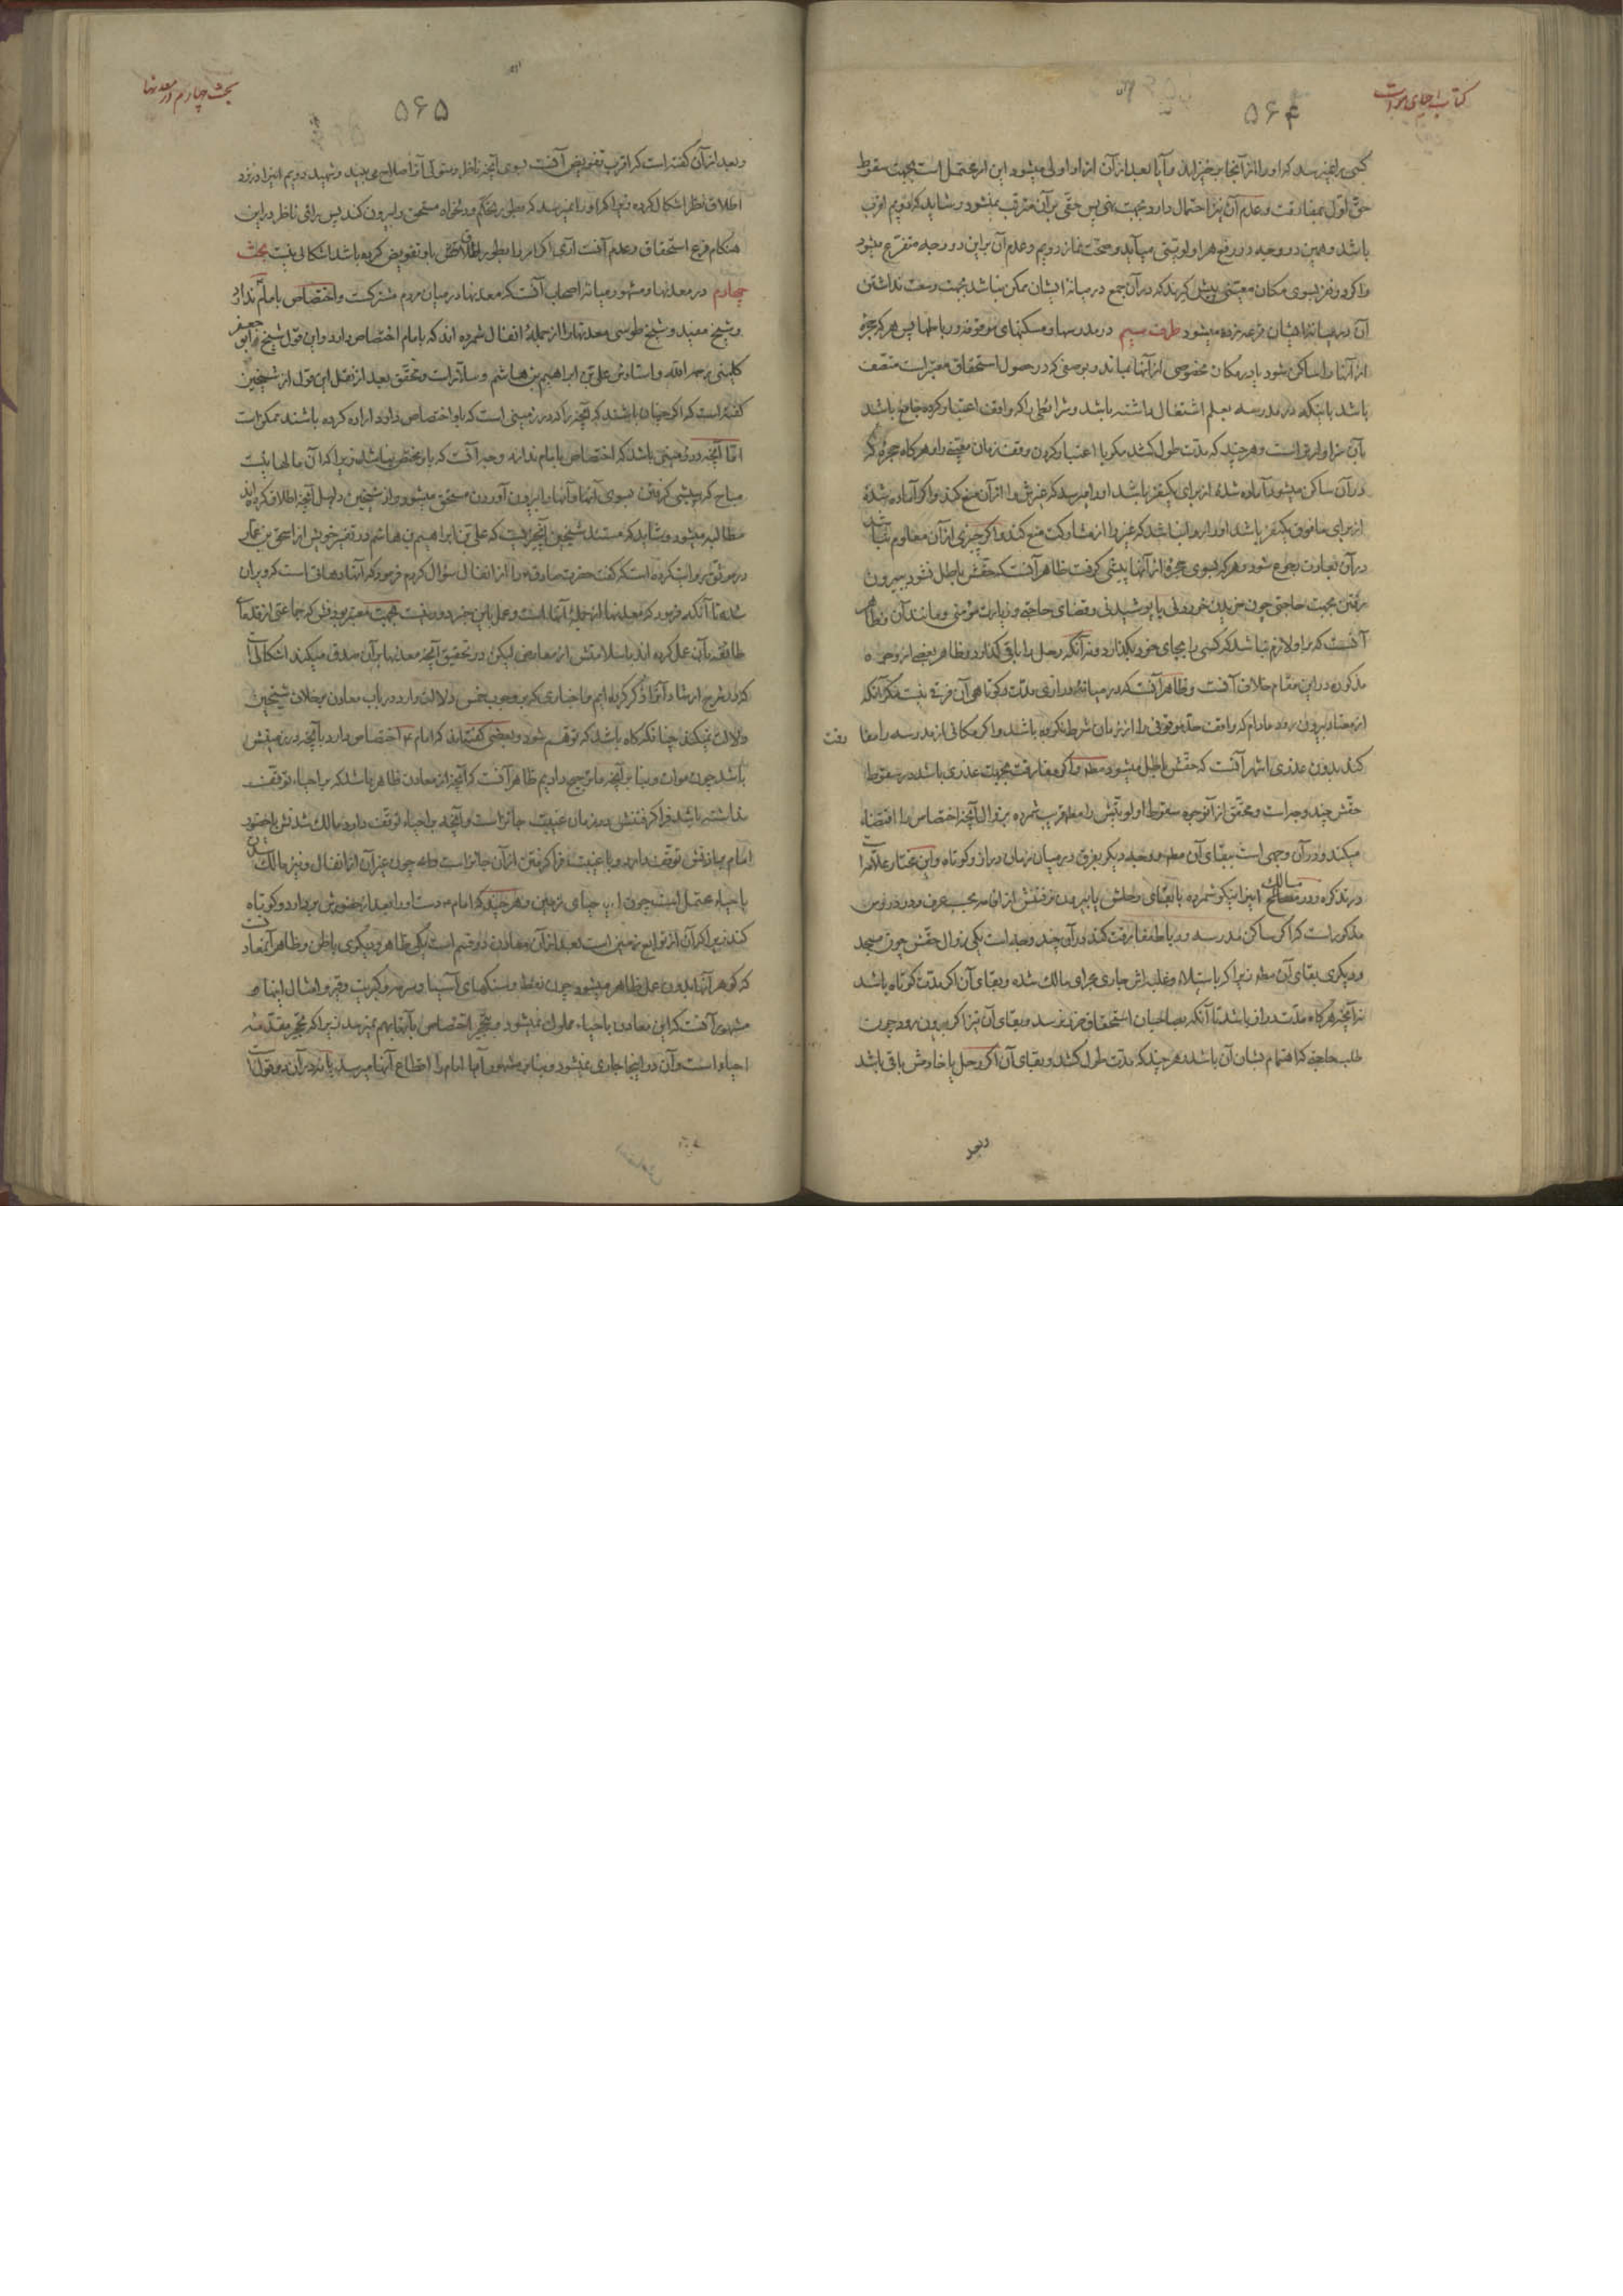 کتاب احیای موات
۵۶۴
کسی را نمیرسد که او را از آنجا برخیزاند و آیا بعد از آن از او اولی میشود این امر محتمل است بجهت سقوط
حق اول بمفارقت و عدم آن نیز احتمال دارد بجهت نهی پس حقی بر آن مترتب نمیشود و شاید که دویم اقرب
باشد و همین دو وجه در رفع هر اولویتی میآید و صحت نماز دویم و عدم آن براین دو وجه متفرع میشود
و اگر دو نفر بسوی مکان معینی پیش گیرند که در آن جمع در میانه ایشان ممکن نباشد بجهت وسعت نداشتن
آن در میانه ایشان قرعه زده میشود طرف سیم در مدرسها و مسکنهای موقوفه و رباطها پس هر که حجره
از آنها را ساکن شود یا در مکان مخصوصی از آنها بماند و بوصفی که در حصول استحقاق معتبر است متصف
باشد باینکه در مدرسه بعلم اشتغال داشته باشد و شرایطی را که واقف اعتبار کرده جامع باشد
بآن سزاوارتر است و هر چند که مدت طول کشد مگر با اعتبار کردن وقف زمان معینی را و هر گاه حجره که
در آن ساکن میشود آماده شده از برای یکنفر باشد او را میرسد که غیرش را از آن منع کند و اگر آماده شده
از برای مافوق یکنفر باشد او را روا نباشد که غیر را از مشارکت منع کند و اگر چیزی از آن معلوم نباشد
در آن بعادت رجوع شود و هر که بسوی حجره از آنها پیشی گرفت ظاهر آنست که حقش باطل نشود ببیرون
رفتن بجهت حاجتی چون خریدن خوردنی یا پوشیدنی و قضای حاجتی و زیارت مؤمنی و مانند آن و ظاهر
آنست که بر او لازم نباشد که کسی را بجای خود بگذارد و نه آنکه رحل را باقی گذارد و ظاهر بعضی از وجوه
مذکوره در این مقام خلاف آنست و ظاهر آنست که در میانه درازی مدت و کوتاهی آن فرقی نیست مگر آنکه
از معتاد بیرون رود مادام که واقف حد موقوفی را از زمان شرط نکرده باشد و اگر مکانی از مدرسه را مفا رقت
کند بدون عذری اشهر آنست که حقش باطل میشود مطه و اگر مفارقت بجهت عذری باشد در سقوط
حقش چند وجه است و محقق از آن وجوه سقوط اولویتش را مطه قریب شمرده بزوال آنچه اختصاص را اقتضاء
میکند و در آن وجهی است ببقای آن مطه و وجه دیگر بفرق در میان زمان دراز و کوتاه و این مختار علامه است
در تذکره و در مسالک آنرا نیکو شمرده با بقای رحلش یا بیرون نرفتنش از آن مدت بحسب عرف و در دروس
مذکور است که اگر ساکن مدرسه و رباط مفارقت کند در آن چند وجه است یکی زوال حقش چون مسجد
و دیگری بقای آن مطه زیرا که باستیلاء و غلبه اش جاری مجرای مالک شده و بقای آن اگر مدت کوتاه باشد
نه آنچه هر گاه مدت دراز باشد تا آنکه بصاحبان استحقاق ضرر نرسد و بقای آن نیز اگر بیرون رود جهت
طلب حاجتی که اهتمام بشان آن باشد هر چند که مدت طول کشد و بقای آن اگر رحل یا خادمش باقی باشد
وبعد
بحث چهارم در معدنها
۵۶۵
و بعد از آن گفته است که اقرب تفویض آنست بسوی آنچه ناظر و متولی آنرا صلاح می بیند و شهید دویم آنرا در نزد
اطلاق نظر اشکال کرده زیرا که او را نمیرسد که بطریق تحکم و دلخواه مستحق را بیرون کند پس براقی ناظر در این
هنگام فرع استحقاق و عدم آنست آری اگر امر را بطریق اطلاق باو تفویض کرده باشد اشکالی نیست بحث
چهارم در معدنها و مشهور میانه اصحاب آنست که معدنها در میان مردم مشترکست و اختصاص بامام ندارد
و شیخ مفید و شیخ طوسی معدنها را از جمله انفال شمرده اند که بامام اختصاص دارد و این قول شیخ ابو جعفر
کلینی رحمه الله و استادش علی بن ابراهیم بن هاشم و سلار است و محقق بعد از نقل این قول از شیخین
گفته است که اگر چنان باشند که آنچه را که در زمینی است که باو اختصاص دارد اراده کرده باشند ممکن است
اما آنچه در زمینی باشد که اختصاص بامام ندارد وجه آنست که باو مختص نباشد زیرا که آن مالها بنیت
مباح که پیشی گرفتن بسوی آنها و آنها را بیرون آوردن مستحق میشود و از شیخین دلیل آنچه اطلاق کرده اند
مطالبه میشود و شاید که مستند شیخین آنچیزیست که علی بن ابراهیم بن هاشم در تفسیر خویش از اسحق بن عمار
در موثق روایت کرده است که گفت حضرت صادق را از انفال سؤال کردم فرمود که آنها دهاتی است که ویران
شده تا آنکه فرمود که معدنها از جمله آنهاست و عمل باین خبر دور نیست بجهت معتبر بودنش که جماعتی از قدمای
طایفه بآن عمل کرده اند با سلامتش از معارض لیکن در تحقیق آنچه معدنها بر آن صدق میکند اشکالی است
که در شرح ارشاد آنرا ذکر کرده ایم و اخباری که بر وجوب خمس دلالت دارد در باب معادن بر خلاف شیخین
دلالت نمیکند چنانکه گاه باشد که توهم شود و بعضی گفته اند که امام اختصاص دارد بآنچه در زمینش
باشد چون موات و بنا بر آنچه ما ترجیح دادیم ظاهر آنست که آنچه از معادن ظاهر باشد که بر احیاء توقف
نداشته باشد فرا گرفتنش در زمان غیبت جائز است و آنچه بر احیاء توقف دارد مالک شدنش با حضور
امام براذنش توقف دارد و با غیبت فرا گرفتن از آن جائز است مطه چون غیر آن از انفال و نیز مالک شدن
باحیاء محتمل است چون احیای زمین و هر چند که امام دست او را بعد از حضورش بردارد و کوتاه
کند زیرا که آن از توابع زمین است بعد از آن معادن دو قسم است یکی ظاهر و دیگری باطن و ظاهر آنهاست
که گوهر آنها بدون عمل ظاهر میشود چون نفط و سنگهای آسیا و سرمه و کبریت و قیر و امثال اینها و
مشهور آنست که این معادن باحیاء مملوک نمیشود و بتحجیر اختصاص بآنها بهم نمیرسد زیرا که تحجیر مقدمه
احیاء است و آن در اینجا جاری نمیشود و بنابر مشهور آیا امام را اقطاع آنها میرسد یا نه در آن دو قول است